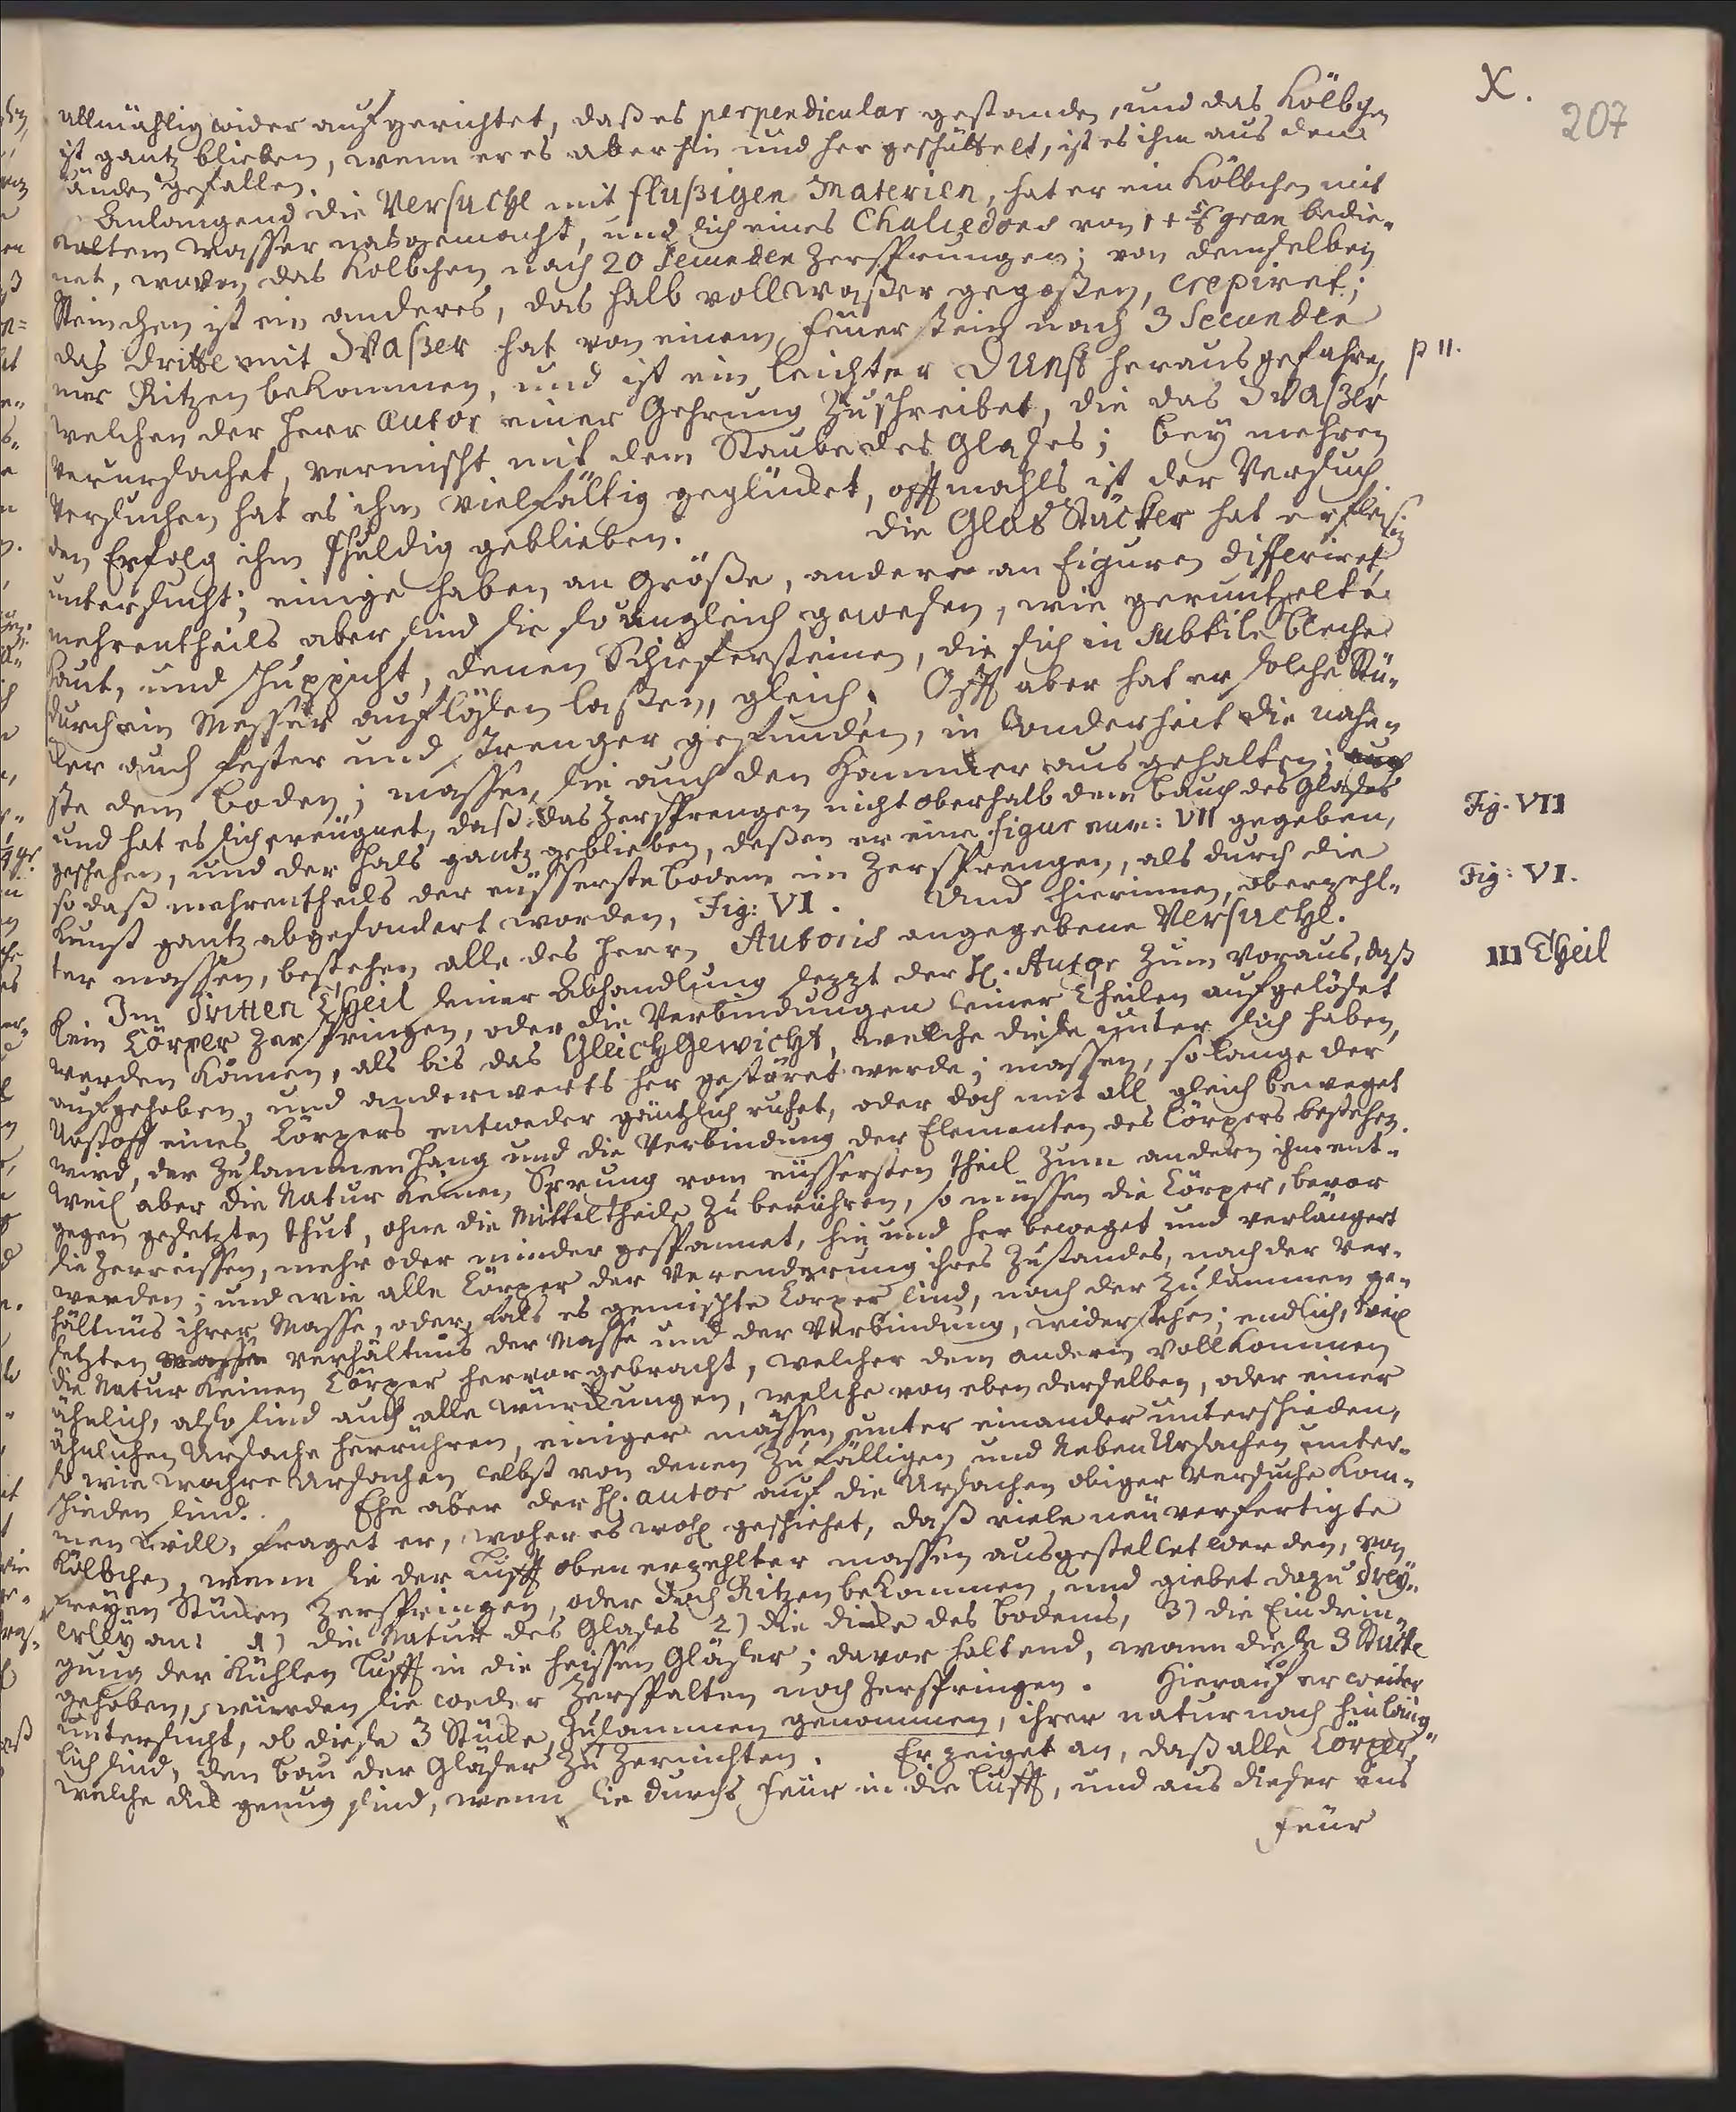 X.
207
allmählig wider aufgerichtet, daß es perpendicular gestanden, und das Kölbgen
ist gantz blieben, wenn er es aber hin und her geschüttelt, ist es ihm aus den
Händen gefallen.
Anlangend die Versuche mit flußigen Materien, hat er ein Kölbchen mit
kaltem Wasser nasgemacht, und sich eines Chalcedons von 1 + 5/8 gran bedie-
net, wovon das Kölbchen nach 20 Secunden zersprungen; von demselben
Steinchen ist ein anderes, das halb voll Waßer gegoßen, crepiret;
das dritte mit Waßer hat von einem Feuerstein nach 3 Secunden
nur Ritzen bekommen, und ist ein leichter Dunst herausgefahren,
p 11.
welchen der Herr Autor einer Gehrung zuschreibet, die das Waßer
verursachet, vermischt mit dem Staube des Glases; bey mehren
Versuchen hat es ihm vielfältig geglücket, offtmahls ist der Versuch
den Erfolg ihm schuldig geblieben. Die Glas Stücker hat er fleißig
untersucht; einige haben an Größe, andere an Figuren differiret,
mehrentheils aber sind sie so ungleich gewesen, wie geruntzelte
Haut, und schuppicht, denen Schiefersteinen, die sich in subtile bleche
durch ein Messer auflösen laßen, gleich; Offt aber hat er solche Stü-
cker auch fester und strenger gefunden, in Sonderheit die nahen
ste dem boden; massen sie auch den Hammer ausgehalten;
und hat es sich ereügnet, daß das Zersprengen nicht oberhalb dem bauch des Glases
geschehen, und der Hals gantz geblieben, deßen er eine Figur num: VII gegeben,
Fig. VII
so daß mehrentheils der eüsserste boden im Zersprengen, als durch die
Kunst gantz abgesondert worden, Fig: VI. Und hierinnen, oberzehl-
Fig: VI.
ter massen, bestehen alle des Herrn Autoris angegebene Versuche.
Im dritten Theil seiner Abhandlung sezzt der H. Autor zum Voraus, daß
III Theil
kein Cörper zerspringen, oder die Verbindungen seiner Theilen aufgelöset
werden können, als bis das Gleichgewicht, welche diese unter sich haben,
aufgehoben, und anderwerts her gestöret werde; massen, so lange der
Urstoff eines Cörpers entweder gäntzlich ruhet, oder doch mit all gleich beweget
wird, der Zusammenhang und die Verbindung der Elementen des Cörpers bestehen.
Weil aber die Natur keinen Sprung vom eüssersten Theil zum andern ihm ent-
gegen gesetzten thut, ohne die Mitteltheile zu berühren, so müssen die Cörper, bevor
sie zerreissen, mehr oder minder gespannet, hin und her beweget und verlängert
werden; und wie alle Cörper der Verenderung ihres Zustandes, nach der Ver-
hältnüs ihrer Masse, oder, fals es gemischte Cörper sind, nach der zusammen ge-
setzten Masse verhältnüs der Masse und der Verbindung, widerstehen; endlich, weil
die Natur keinen Cörper hervorgebracht, welcher dem andern vollkommen
ähnlich, also sind auch alle würckungen, welche von eben derselben, oder einer
ähnlichen Ursache herrühren, einiger massen unter einander unterschieden,
so wie wahre Ursachen selbst von denen zufälligen und Neben Ursachen unter-
schieden sind. Ehe aber der H. autor auf die Ursachen obiger Versuche kom-
men will, fraget er, woher es wohl geschiehet, daß viele neü verfertigte
Kölbchen, wenn sie der Lufft oben erzehlter massen ausgestellet werden, von
freyen Stücken zerspringen, oder doch Ritzen bekommen, und giebet dazu drey-
erley an: 1) die Natur des Glases 2) die dicke des bodens, 3) die Eindrin-
gung der kühlen Lufft in die heissen Gläser; davor haltend, wann diese 3 Stücke
gehoben, würden sie weder zerspalten noch zerspringen. Hierauf er weiter
untersucht, ob diese 3 Stücke, zusammen genommen, ihrer natur nach hinläng-
lich sind, den bau der Gläser zu zernichten. Er zeiget an, daß alle Cörper,
welche dick genug sind, wenn sie durchs Feür in die Lufft, und aus dieser ins
Feür